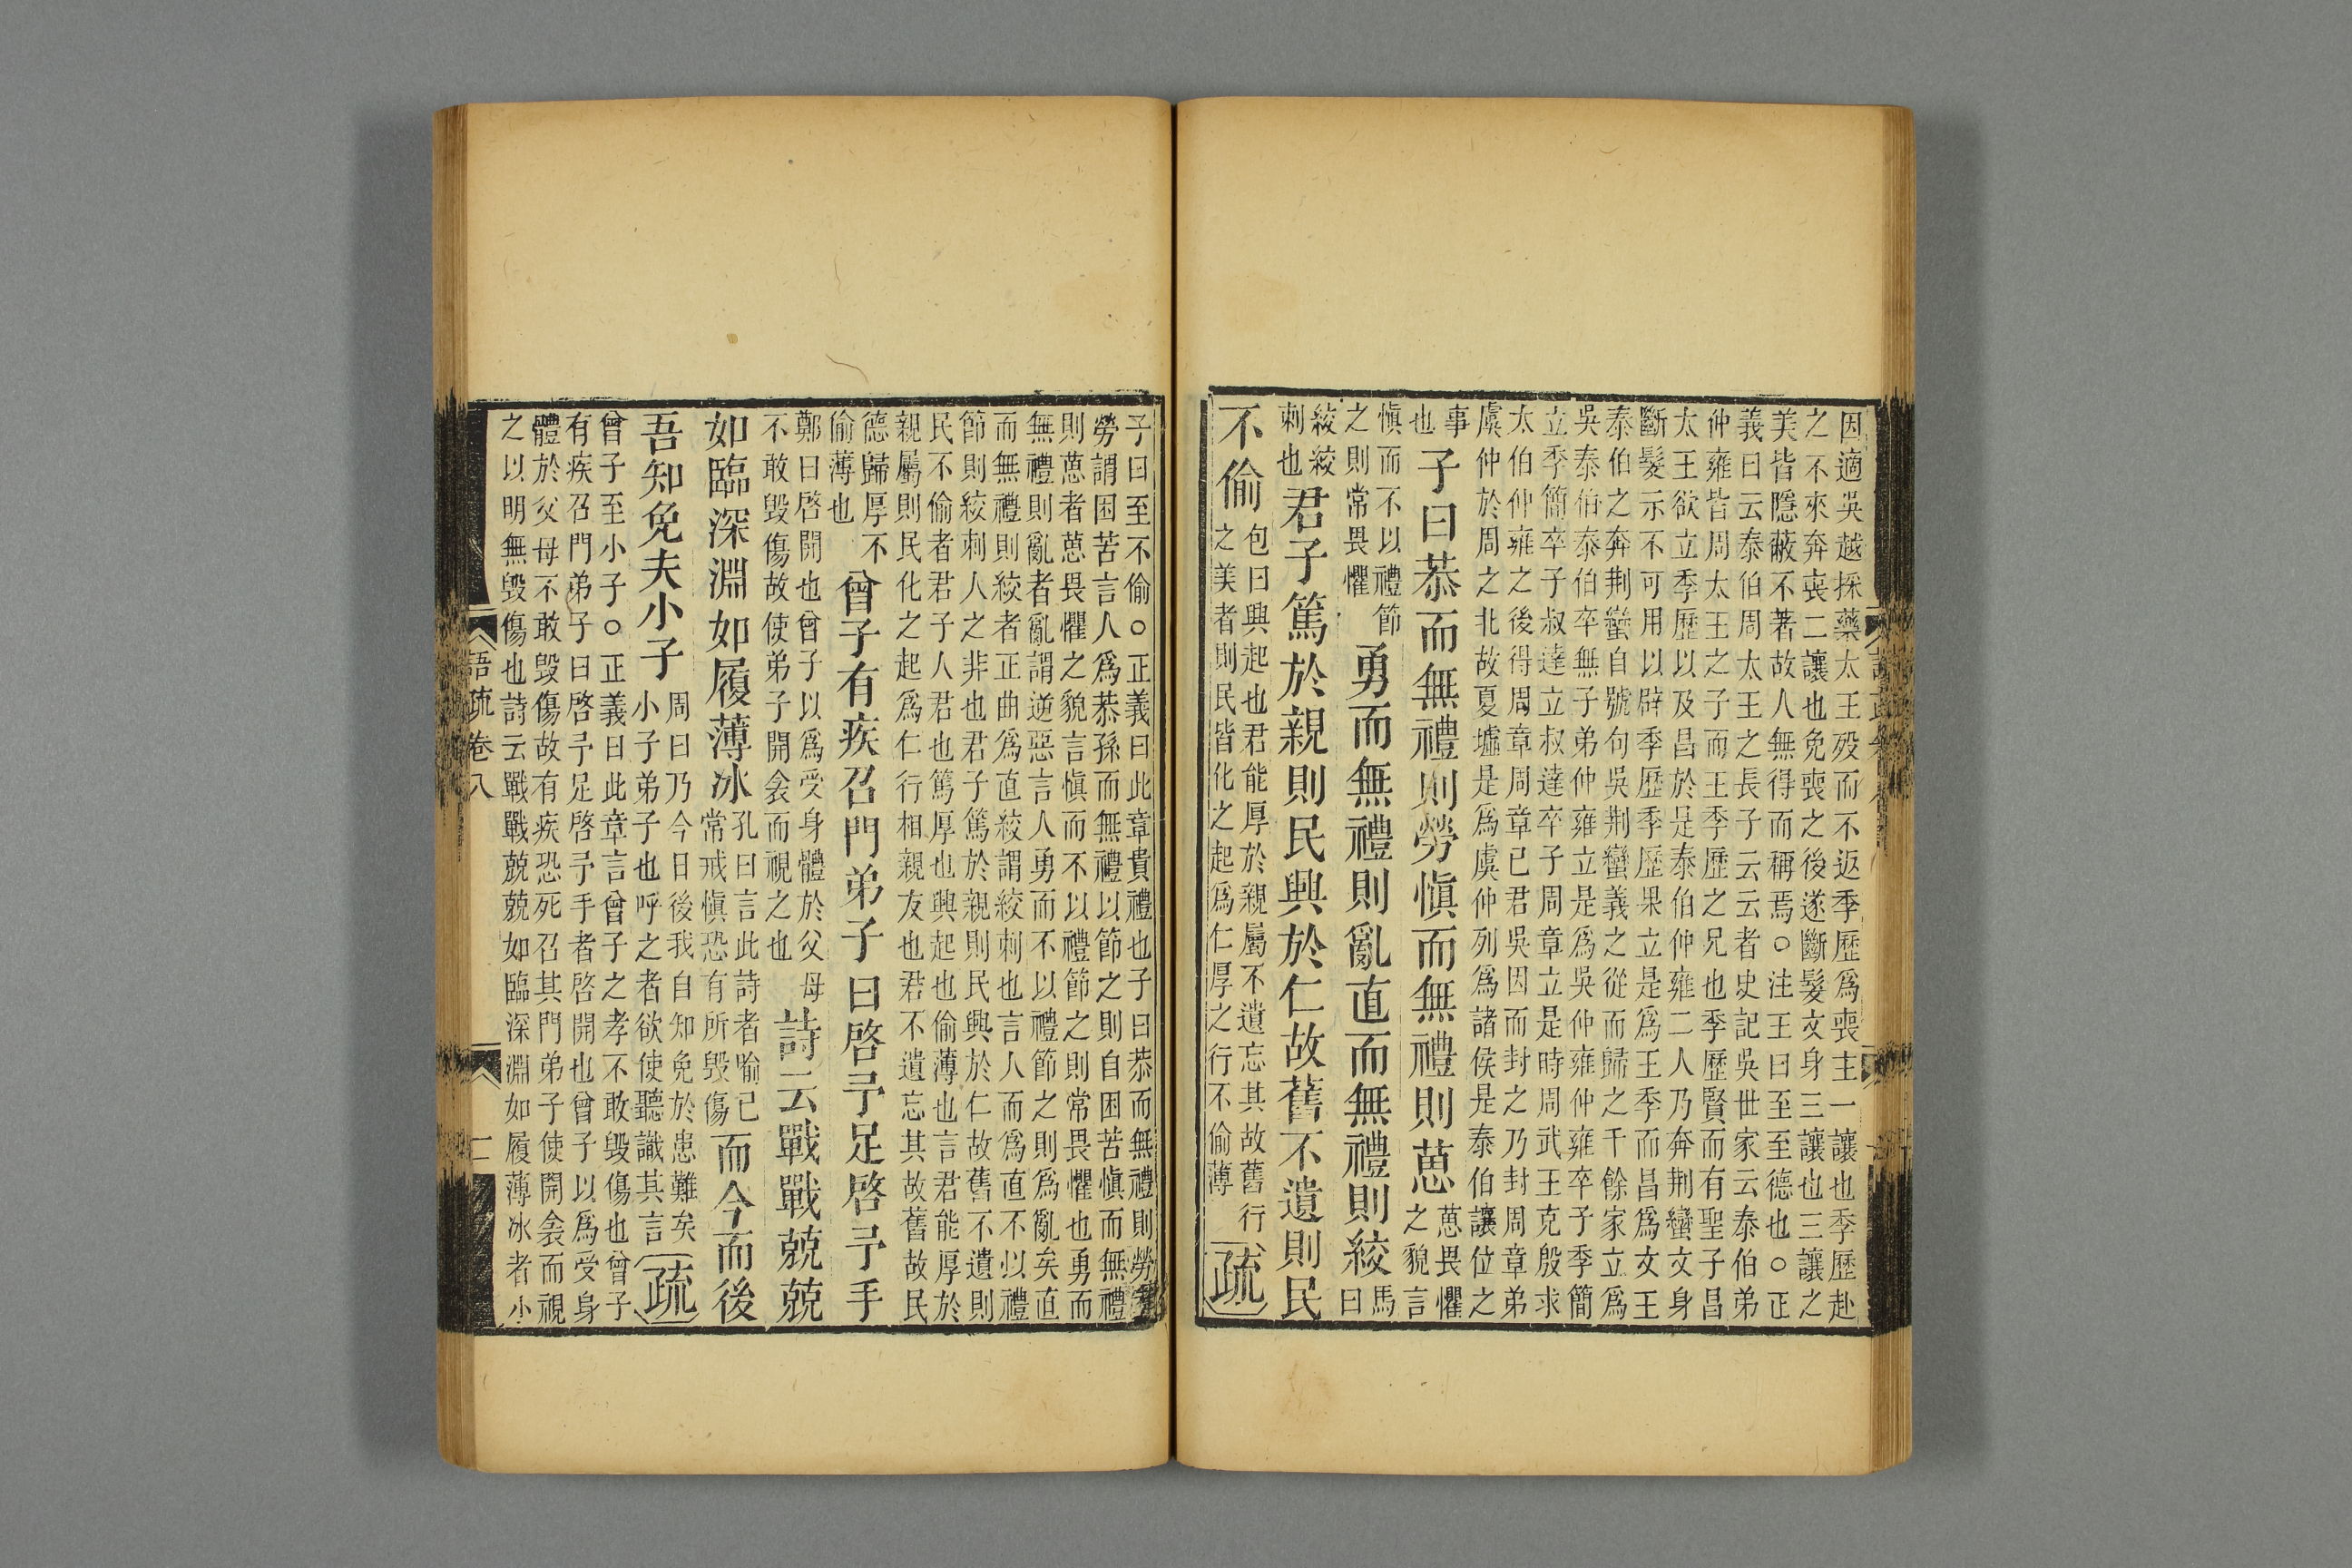 因適吳越採藥太王歿而不返季歷爲喪主一讓也季歷赴
之不來奔喪二讓也免喪之後遂斷髮文身三讓也三讓之
美皆隱蔽不著故人無得而稱焉○注王曰至至德也○正
義曰云泰伯周太王之長子云云者史記吳世家云泰伯弟
仲雍皆周太王之子而王季歷之兄也季歷賢而有聖子昌
太王欲立季歷以及昌於是泰伯仲雍二人乃奔荆蠻文身
斷髮示不可用以辟季歷季歷果立是爲王季而昌爲文王
泰伯之奔荆蠻自號句吳荆蠻義之從而歸之千餘家立爲
吳泰伯泰伯卒無子弟仲雍立是爲吳仲雍仲雍卒子季簡
立季簡卒子叔達立叔達卒子周章立是時周武王克殷求
太伯仲雍之後得周章周章已君吳因而封之乃封周章弟
虞仲於周之北故夏墟是爲虞仲列爲諸侯是泰伯讓位之
事
也
子曰恭而無禮則勞愼而無禮則葸
葸畏懼
之貌言
愼而不以禮節
之則常畏懼
勇而無禮則亂直而無禮則絞
馬
曰
絞絞
刺也
君子篤於親則民興於仁故舊不遺則民
不偷
包曰興起也君能厚於親屬不遺忘其故舊行
之美者則民皆化之起爲仁厚之行不偷薄
疏
子曰至不偷○正義曰此章貴禮也子曰恭而無禮則勞者
勞謂困苦言人爲恭孫而無禮以節之則自困苦愼而無禮
則葸者葸畏懼之貌言愼而不以禮節之則常畏懼也勇而
無禮則亂者亂謂逆惡言人勇而不以禮節之則爲亂矣直
而無禮則絞者正曲爲直絞謂絞刺也言人而爲直不以禮
節則絞刺人之非也君子篤於親則民興於仁故舊不遺則
民不偷者君子人君也篤厚也興起也偷薄也言君能厚於
親屬則民化之起爲仁行相親友也君不遺忘其故舊故民
德歸厚不
偷薄也
曾子有疾召門弟子曰啓予足啓予手
鄭曰啓開也曾子以爲受身體於父母
不敢毀傷故使弟子開衾而視之也
詩云戰戰兢兢
如臨深淵如履薄冰
孔曰言此詩者喻己
常戒愼恐有所毀傷
而今而後
吾知免夫小子
周曰乃今日後我自知免於患難矣
小子弟子也呼之者欲使聽識其言
疏
曾子至小子○正義曰此章言曾子之孝不敢毀傷也曾子
有疾召門弟子曰啓予足啓予手者啓開也曾子以爲受身
體於父母不敢毀傷故有疾恐死召其門弟子使開衾而視
之以明無毀傷也詩云戰戰兢兢如臨深淵如履薄冰者小
語疏卷八
二